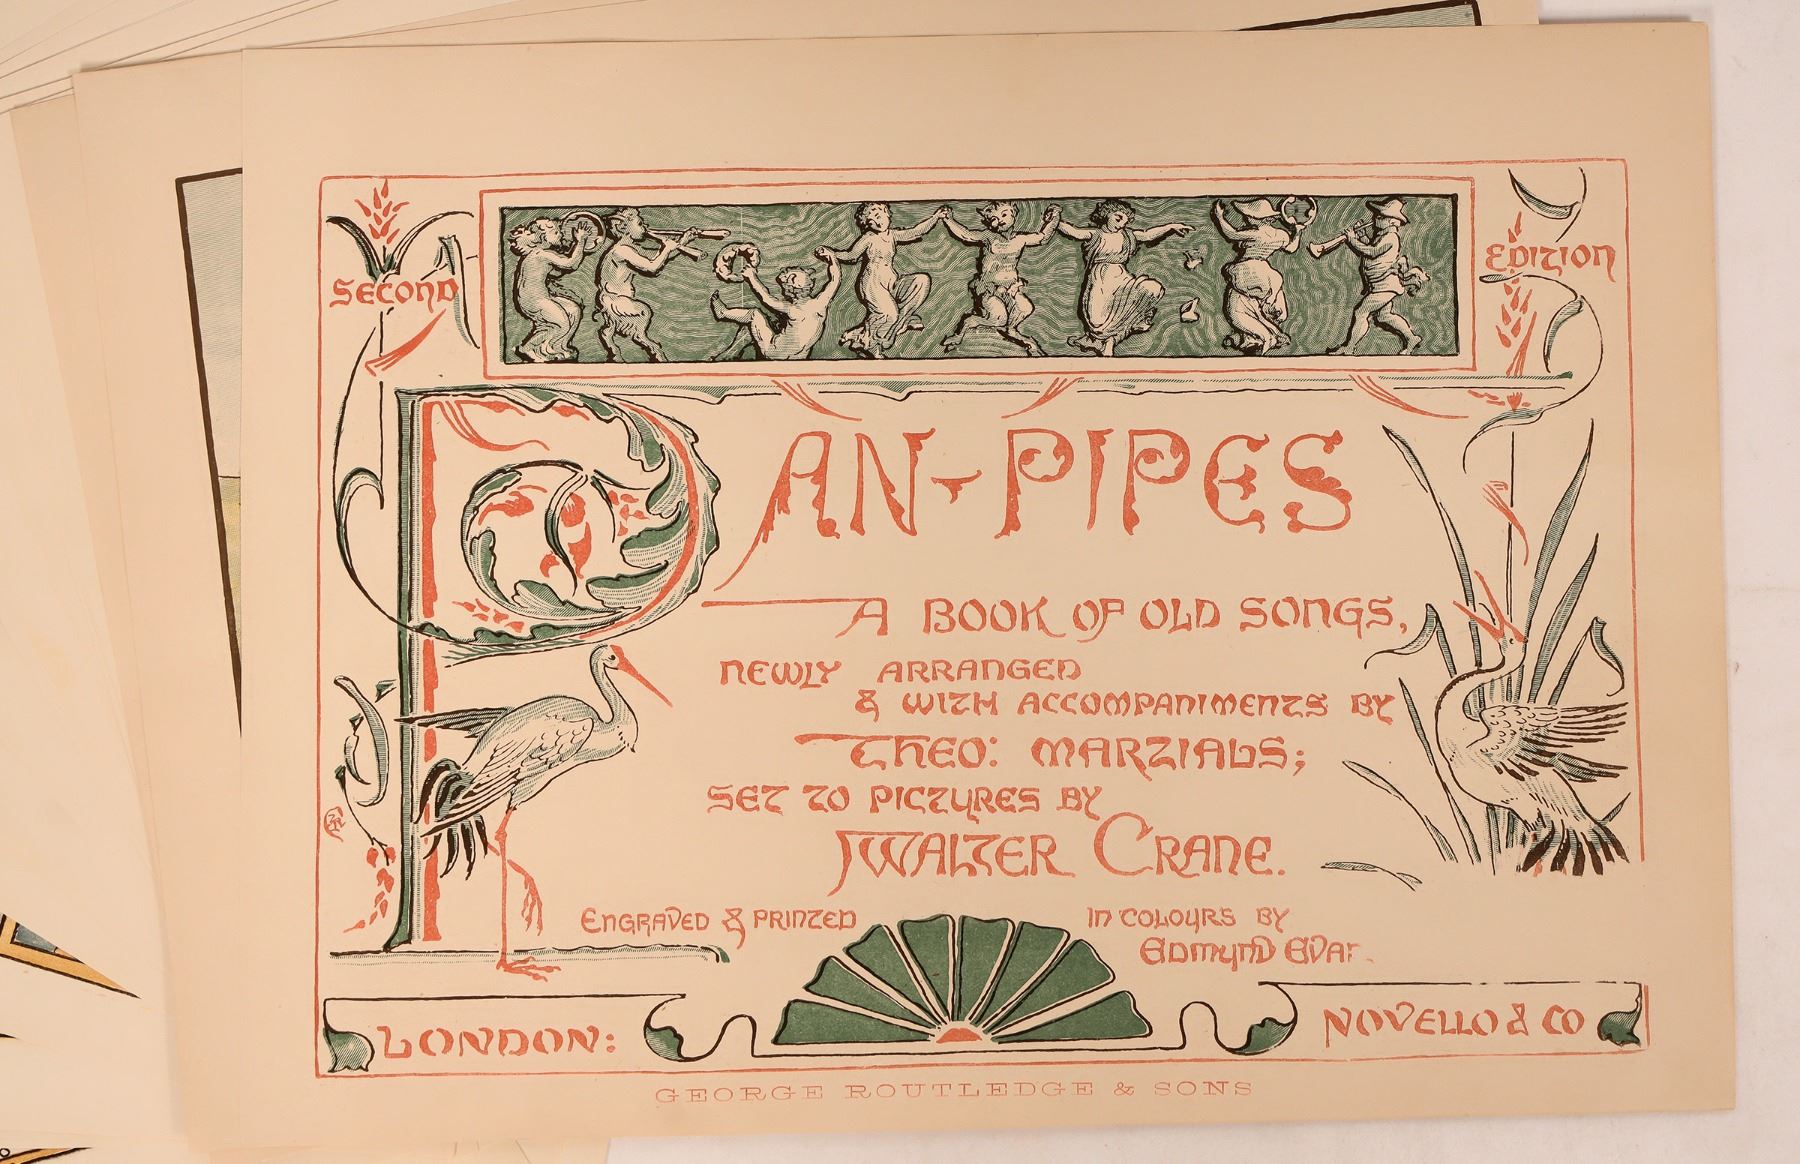 SECOND EDITION
PAN-PIPES
A BOOK OF OLD SONGS,
NEWLY ARRANGED
& WITH ACCOMPANIMENTS BY
THEO: MARZIALS;
SET TO PICTURES BY
WALTER CRANE.
ENGRAVED & PRINTED IN COLOURS BY
EDMUND
LONDON: NOVELLO & CO
GEORGE ROUTLEDGE & SONS